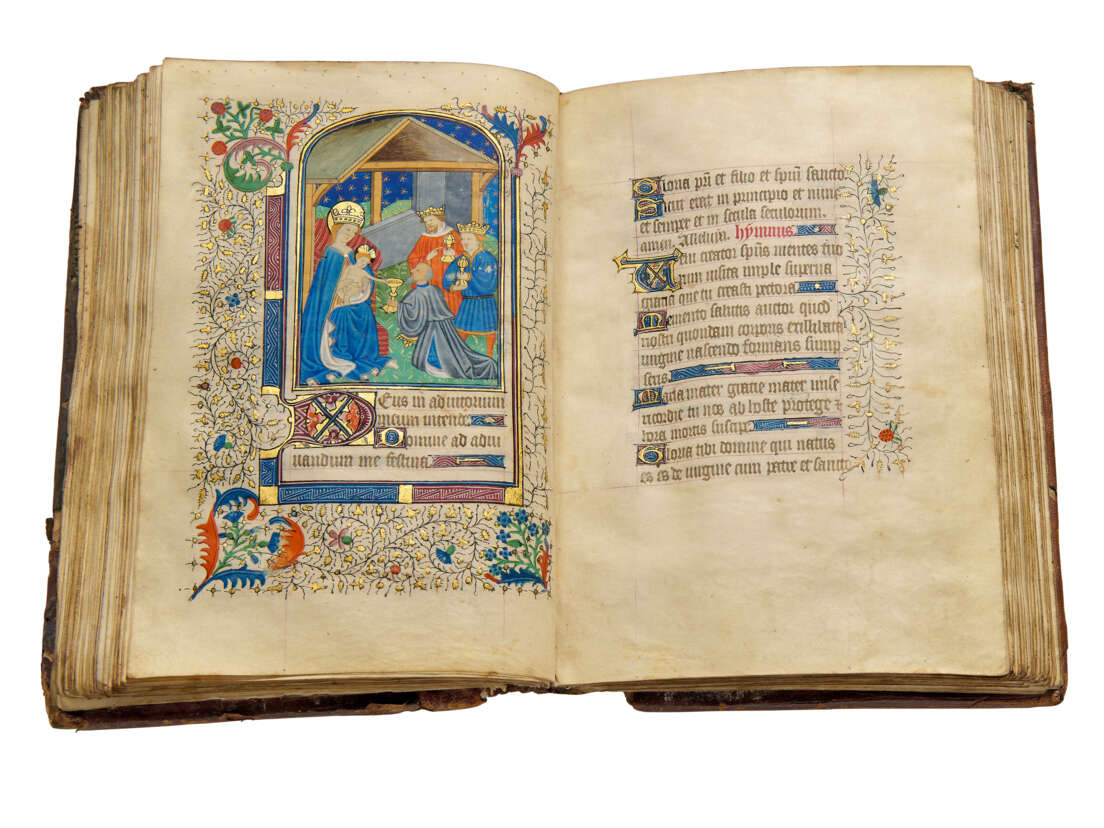 Deus in adiutorium
meum intende
Domine ad adiu
uandum me festina
Gloria pri et filio et spiu sancto
Sicut erat in principio et nunc
et semper et in secula seculorum.
amen. Alleluya. hymnus
Veni creator spus mentes tuo
rum visita imple superna
gratia que tu creasti pectora
Memento salutis auctor quod
nostri quondam corporis ex illibata
virgine nascendo formam sump
seris
Maria mater gratie mater mise
ricordie tu nos ab hoste protege et
hora mortis suscipe
Gloria tibi domine qui natus
es de virgine cum patre et sancto